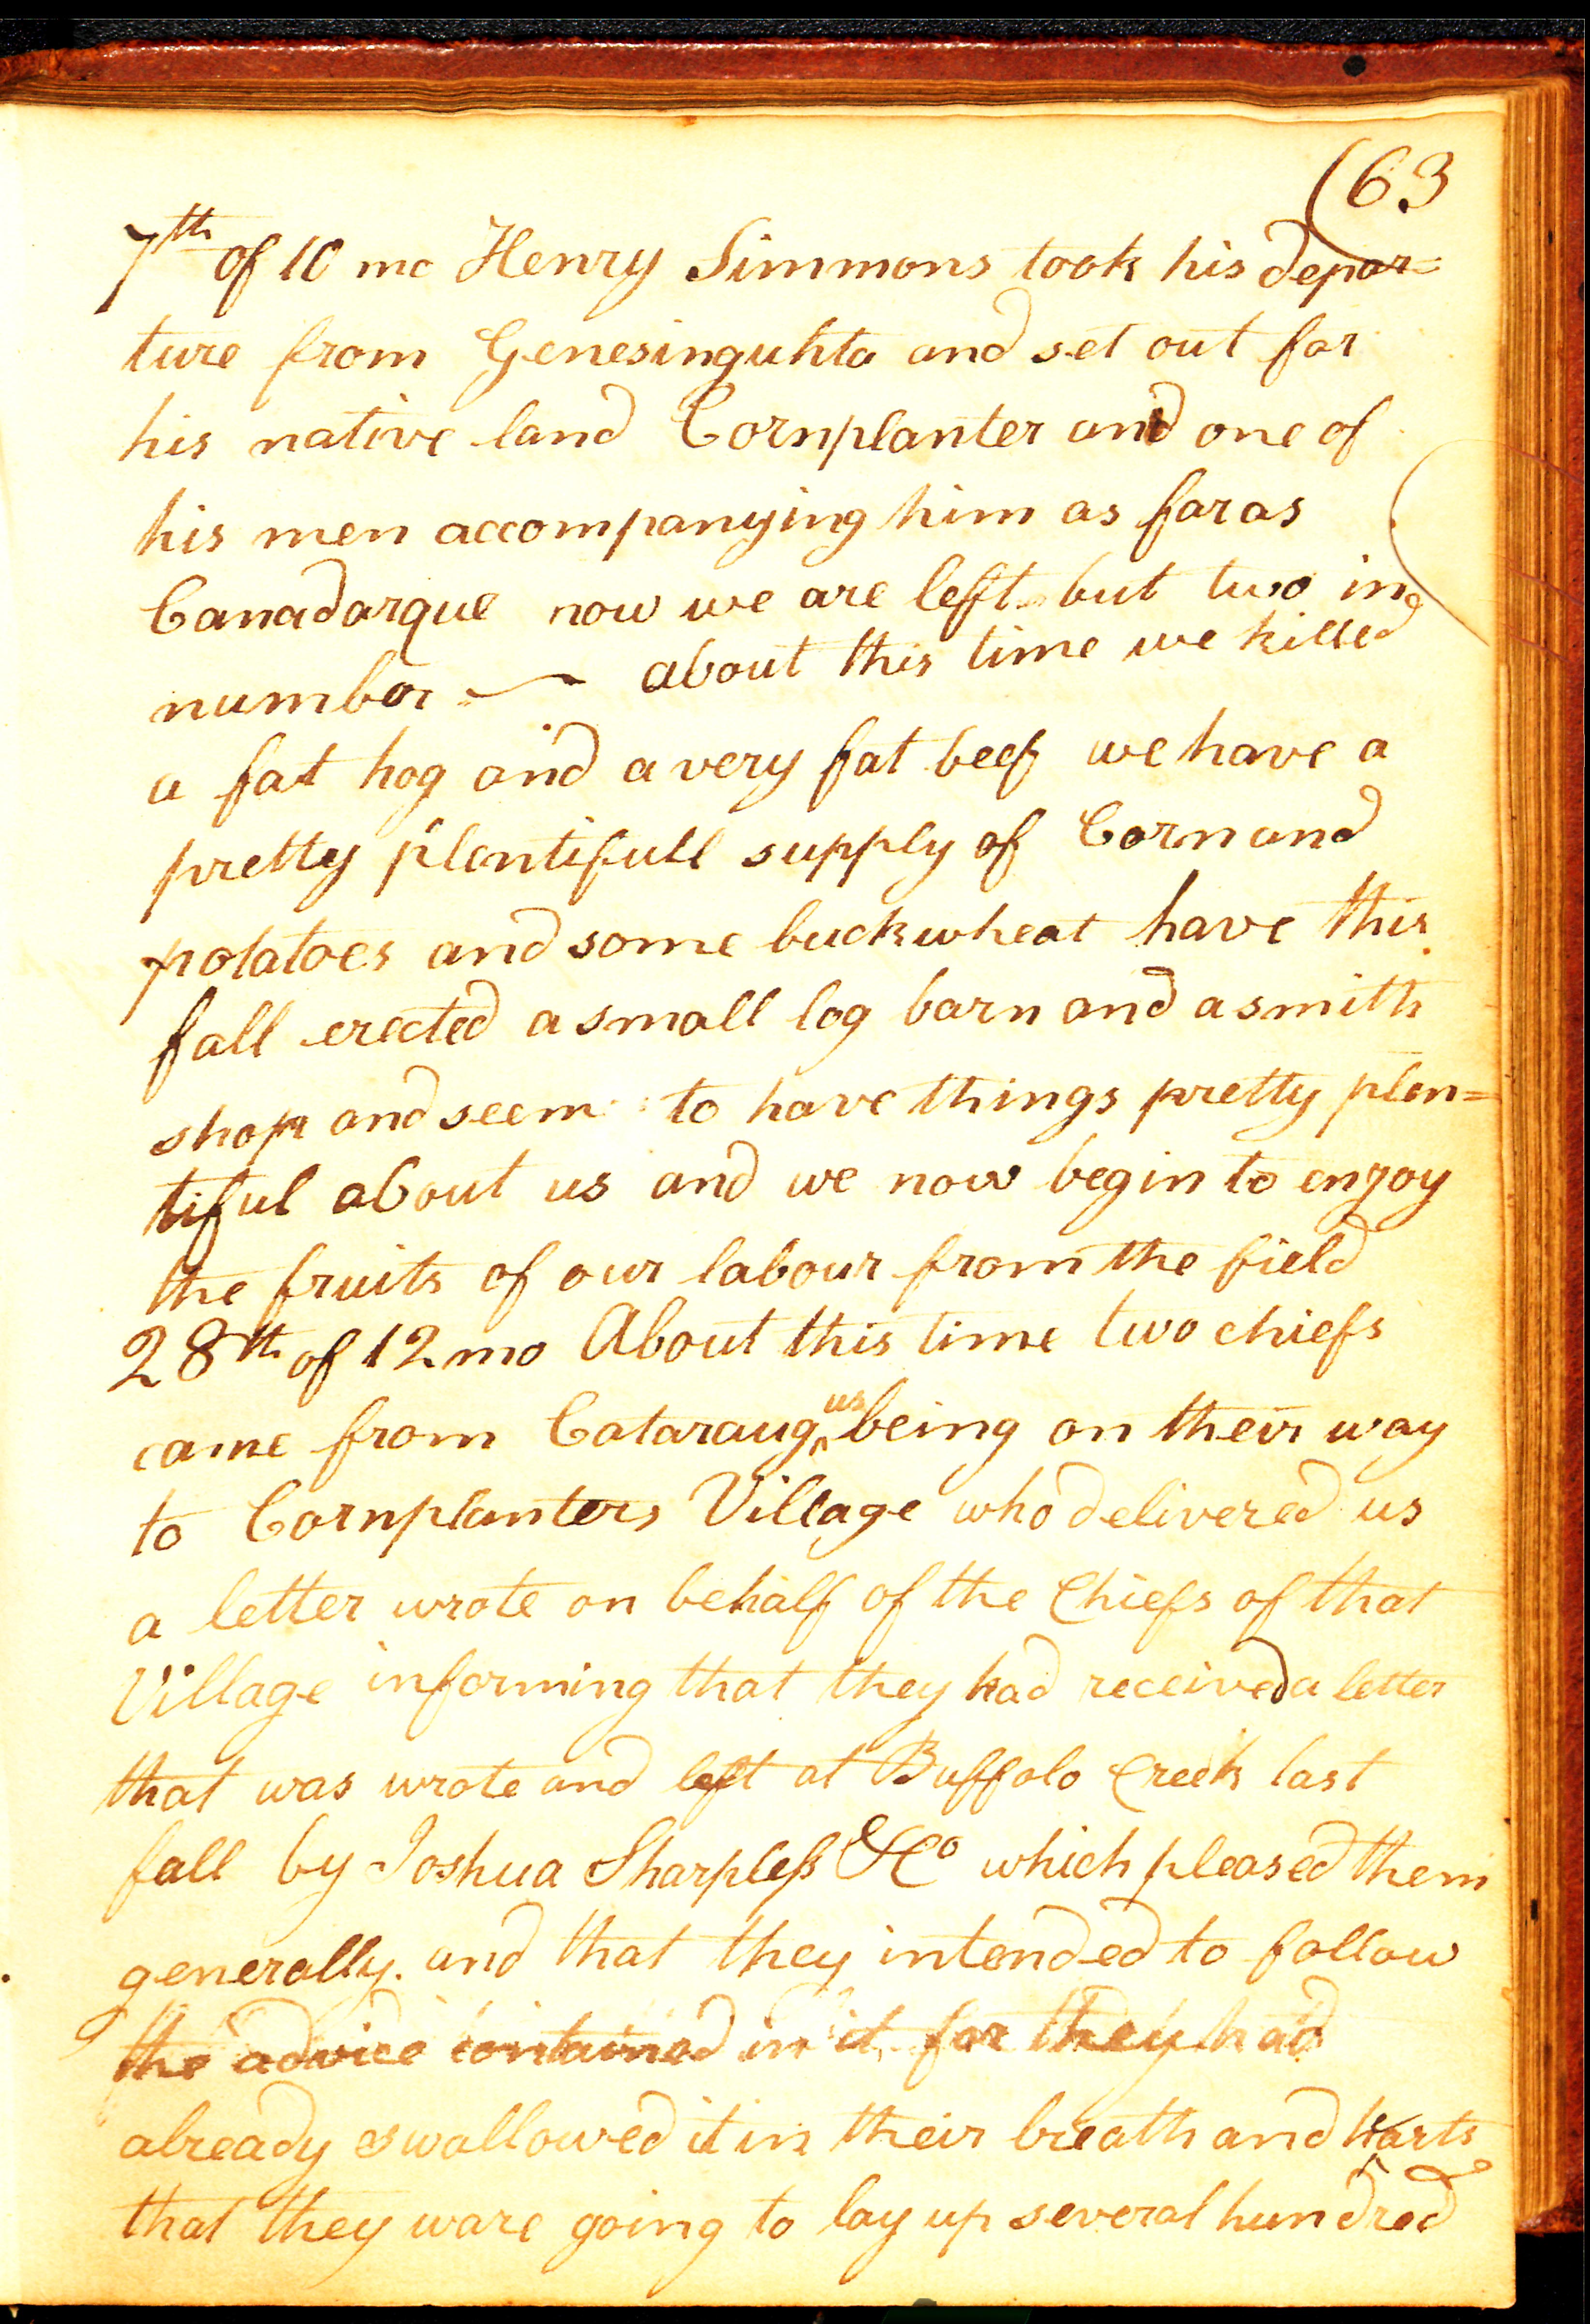 (63
7th of 10 mo Henry Simmons took his depar=
ture from Genesinguhta and set out for
his native land Cornplanter and one of
his men accompanying him as far as
Canadarque now we are left but two in
number — about this time we killed
a fat hog and a very fat beef we have a
pretty plentifull supply of Corn and
potatoes and some buckwheat have this
fall erected a small log barn and a smith
shop and seem to have things pretty plen=
tiful about us and we now begin to enjoy
the fruits of our labour from the field
28th of 12 mo About this time two chiefs
came from Cataraug^us being on their way
to Cornplanters Village who delivered us
a letter wrote on behalf of the Chiefs of that
Village informing that they had received a letter
that was wrote and left at Buffolo Creek last
fall by Joshua Sharpless & Co which pleased them
generally. and that they intended to follow
the advice contained in it for they had
already swallowed it in their breath and harts
that they ware going to lay up several hundred